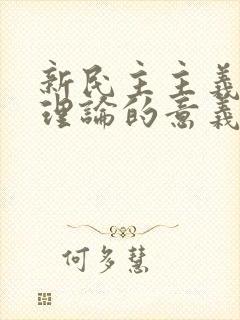 新民主主義
理論的意義
何多慧